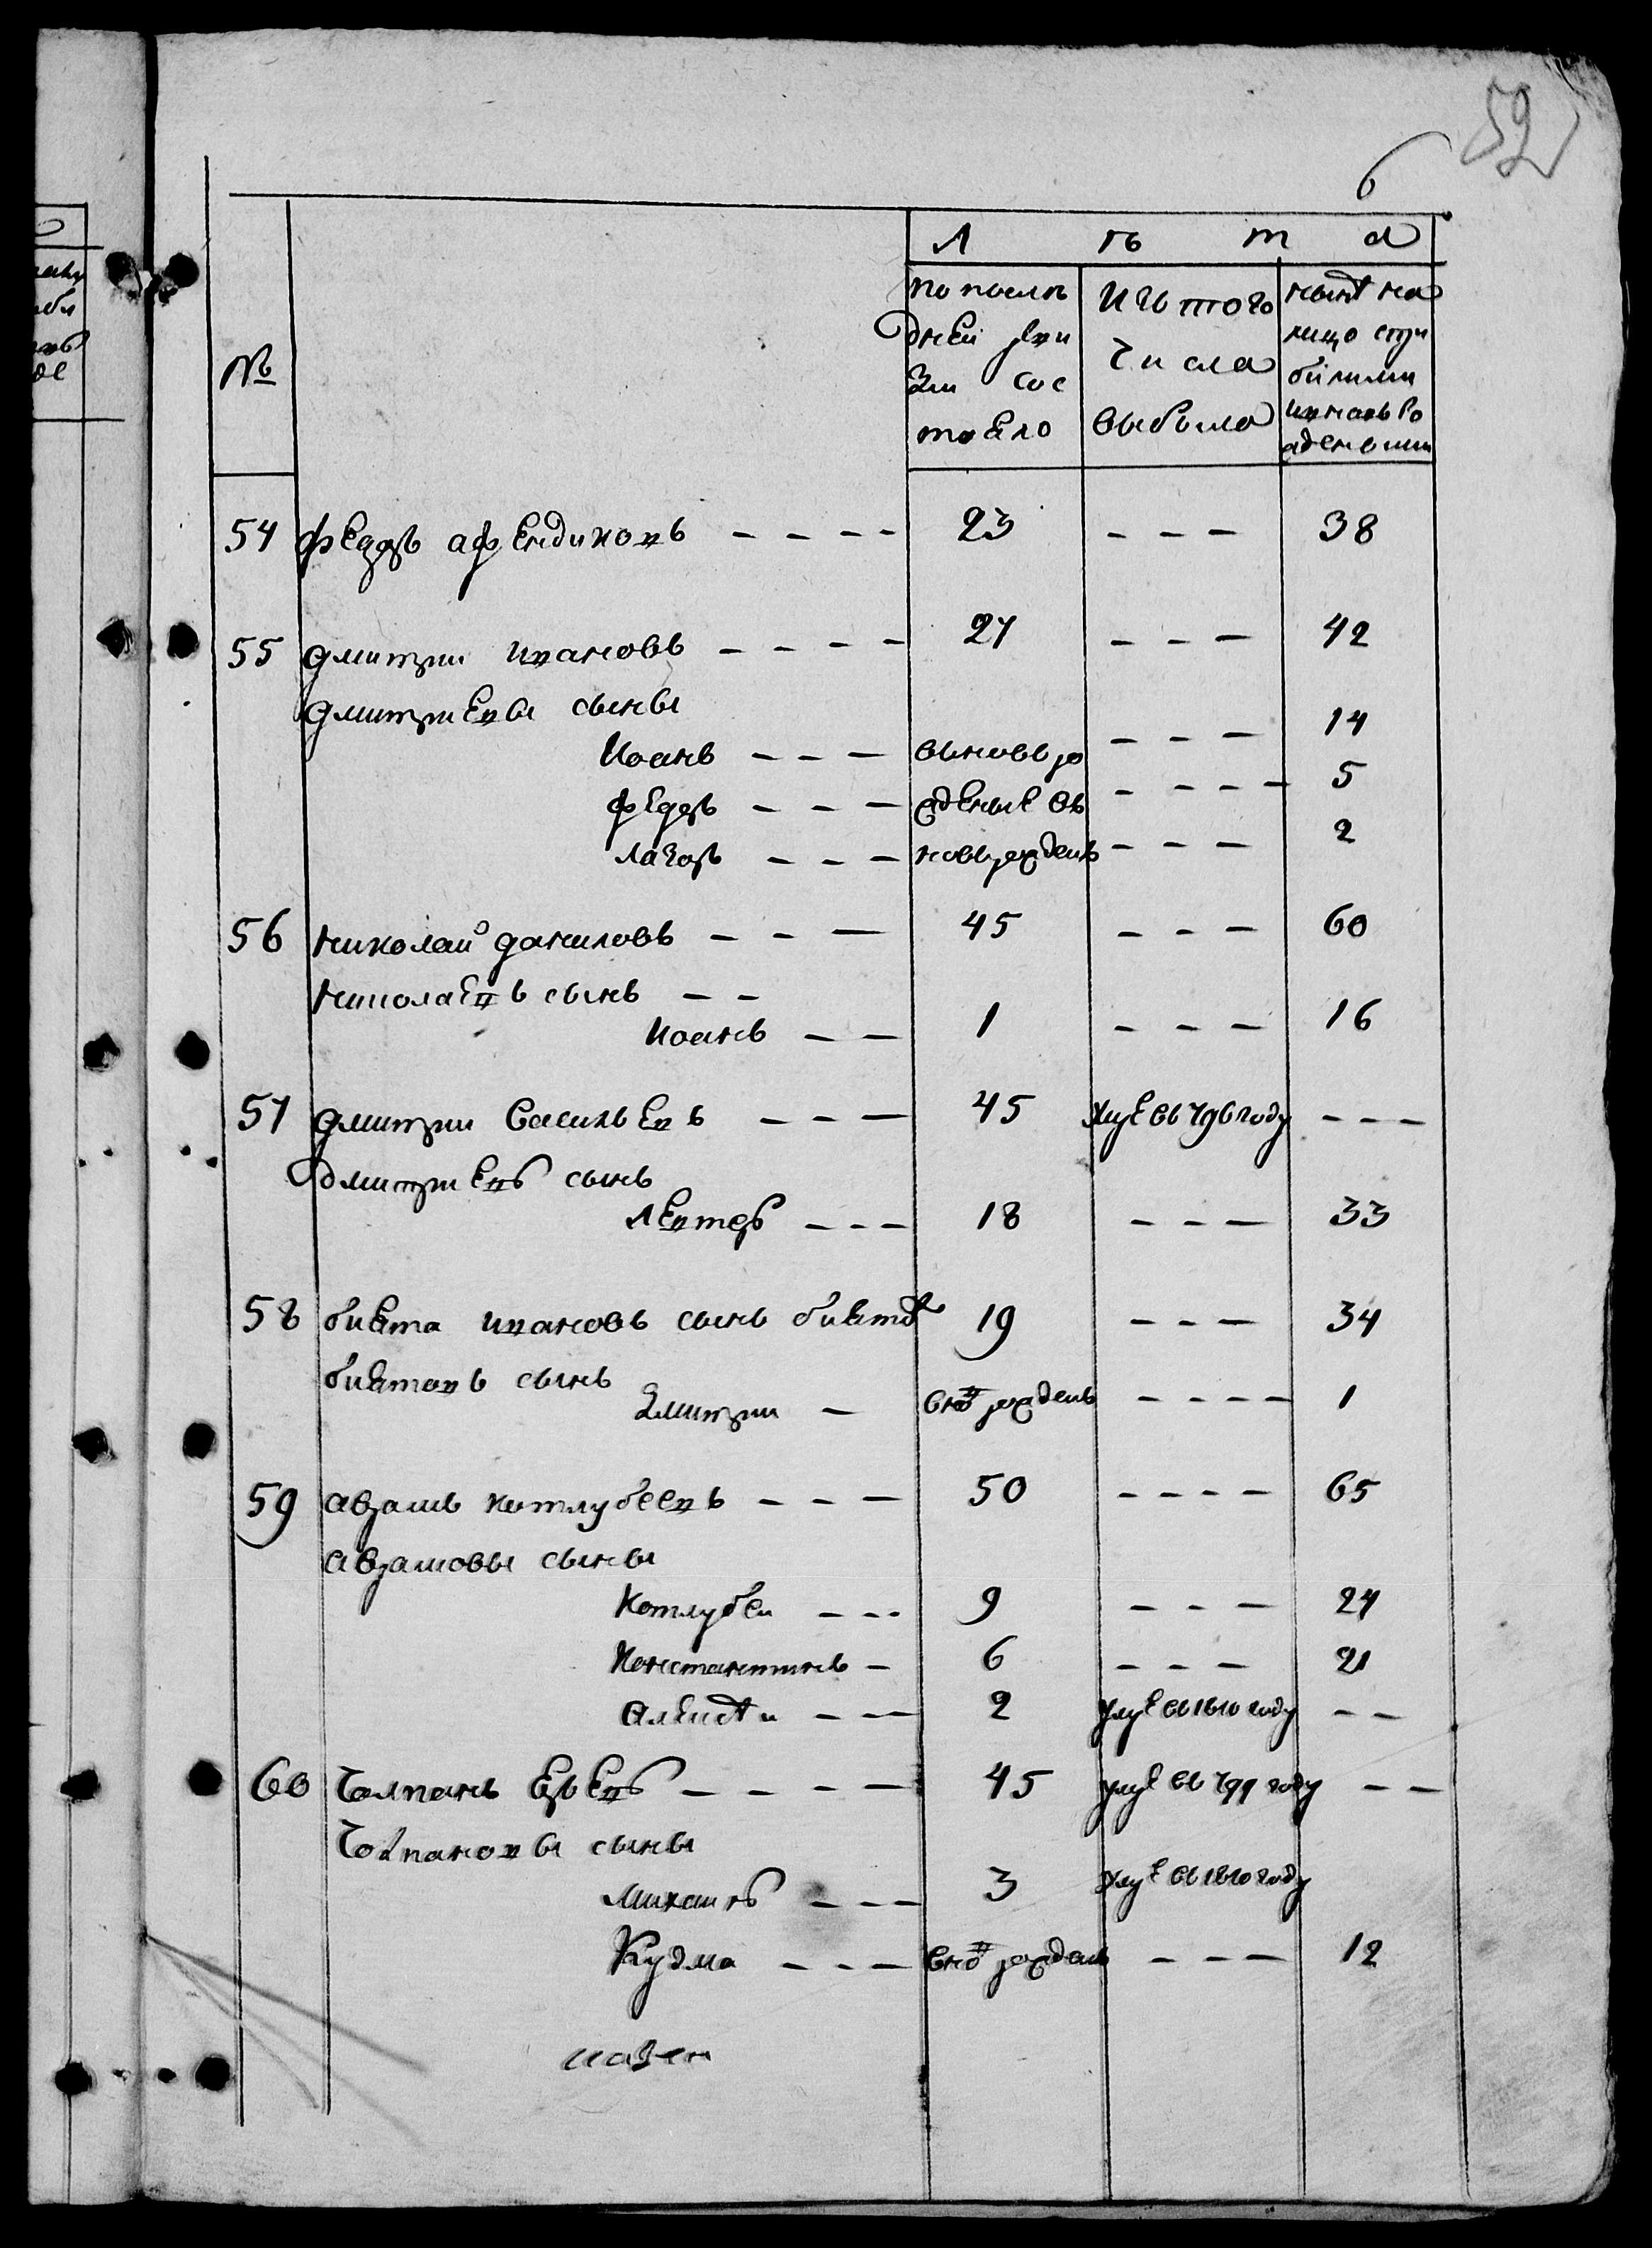 52
6
Л ѣ т а
№
по послѣ
дней реви
зіи сос
тояло
изъ того
числа
выбыло
нынѣ на
лицо
54 федоръ афендиковъ - - - - 23 - - - 38
55 дмитрии ивановъ - - - - 27 - - - 42
дмитриевы сыны
Иоанъ - - - вьновь ро - - - 14
федоръ - - - жденые вь - - - - 5
лазоръ - - - новь рождень - - - 2
56 николай даниловъ - - - 45 - - - 60
николаевъ сынъ - -
Иоанъ - - 1 - - - 16
57 дмитрии васильевъ - - - 45 умре въ 796 году - - -
дмитриевъ сынъ
левтеръ - - - 18 - - - 33
58 бията ивановъ сынъ 19 - - - 34
биятовъ сынъ
дмитрии - внов рождень - - - - 1
59 аврамъ котлубеевъ - - - 50 - - - - 65
аврамовы сыны
Котлубеи - - - 9 - - - 24
Константинъ - 6 - - - 21
алексѣи - - - 2 умре въ 1810 году - -
60 Чолпанъ - - - - 45 умре въ 799 году - -
Чолпановы сыны
Михаилъ - - - 3 умре въ 1810 году
Кузма - - - внов рождень - - - 12